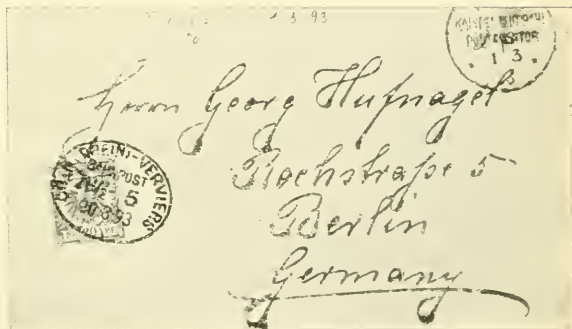 3 93
KAISERL DEUTSCHE
POSTAGENTUR
1 3
Herrn Georg Hufnagel
Rochstraße 5
Berlin
Germany
(RHEIN)-VERVIERS
BAHNPOST
5
20 3 93